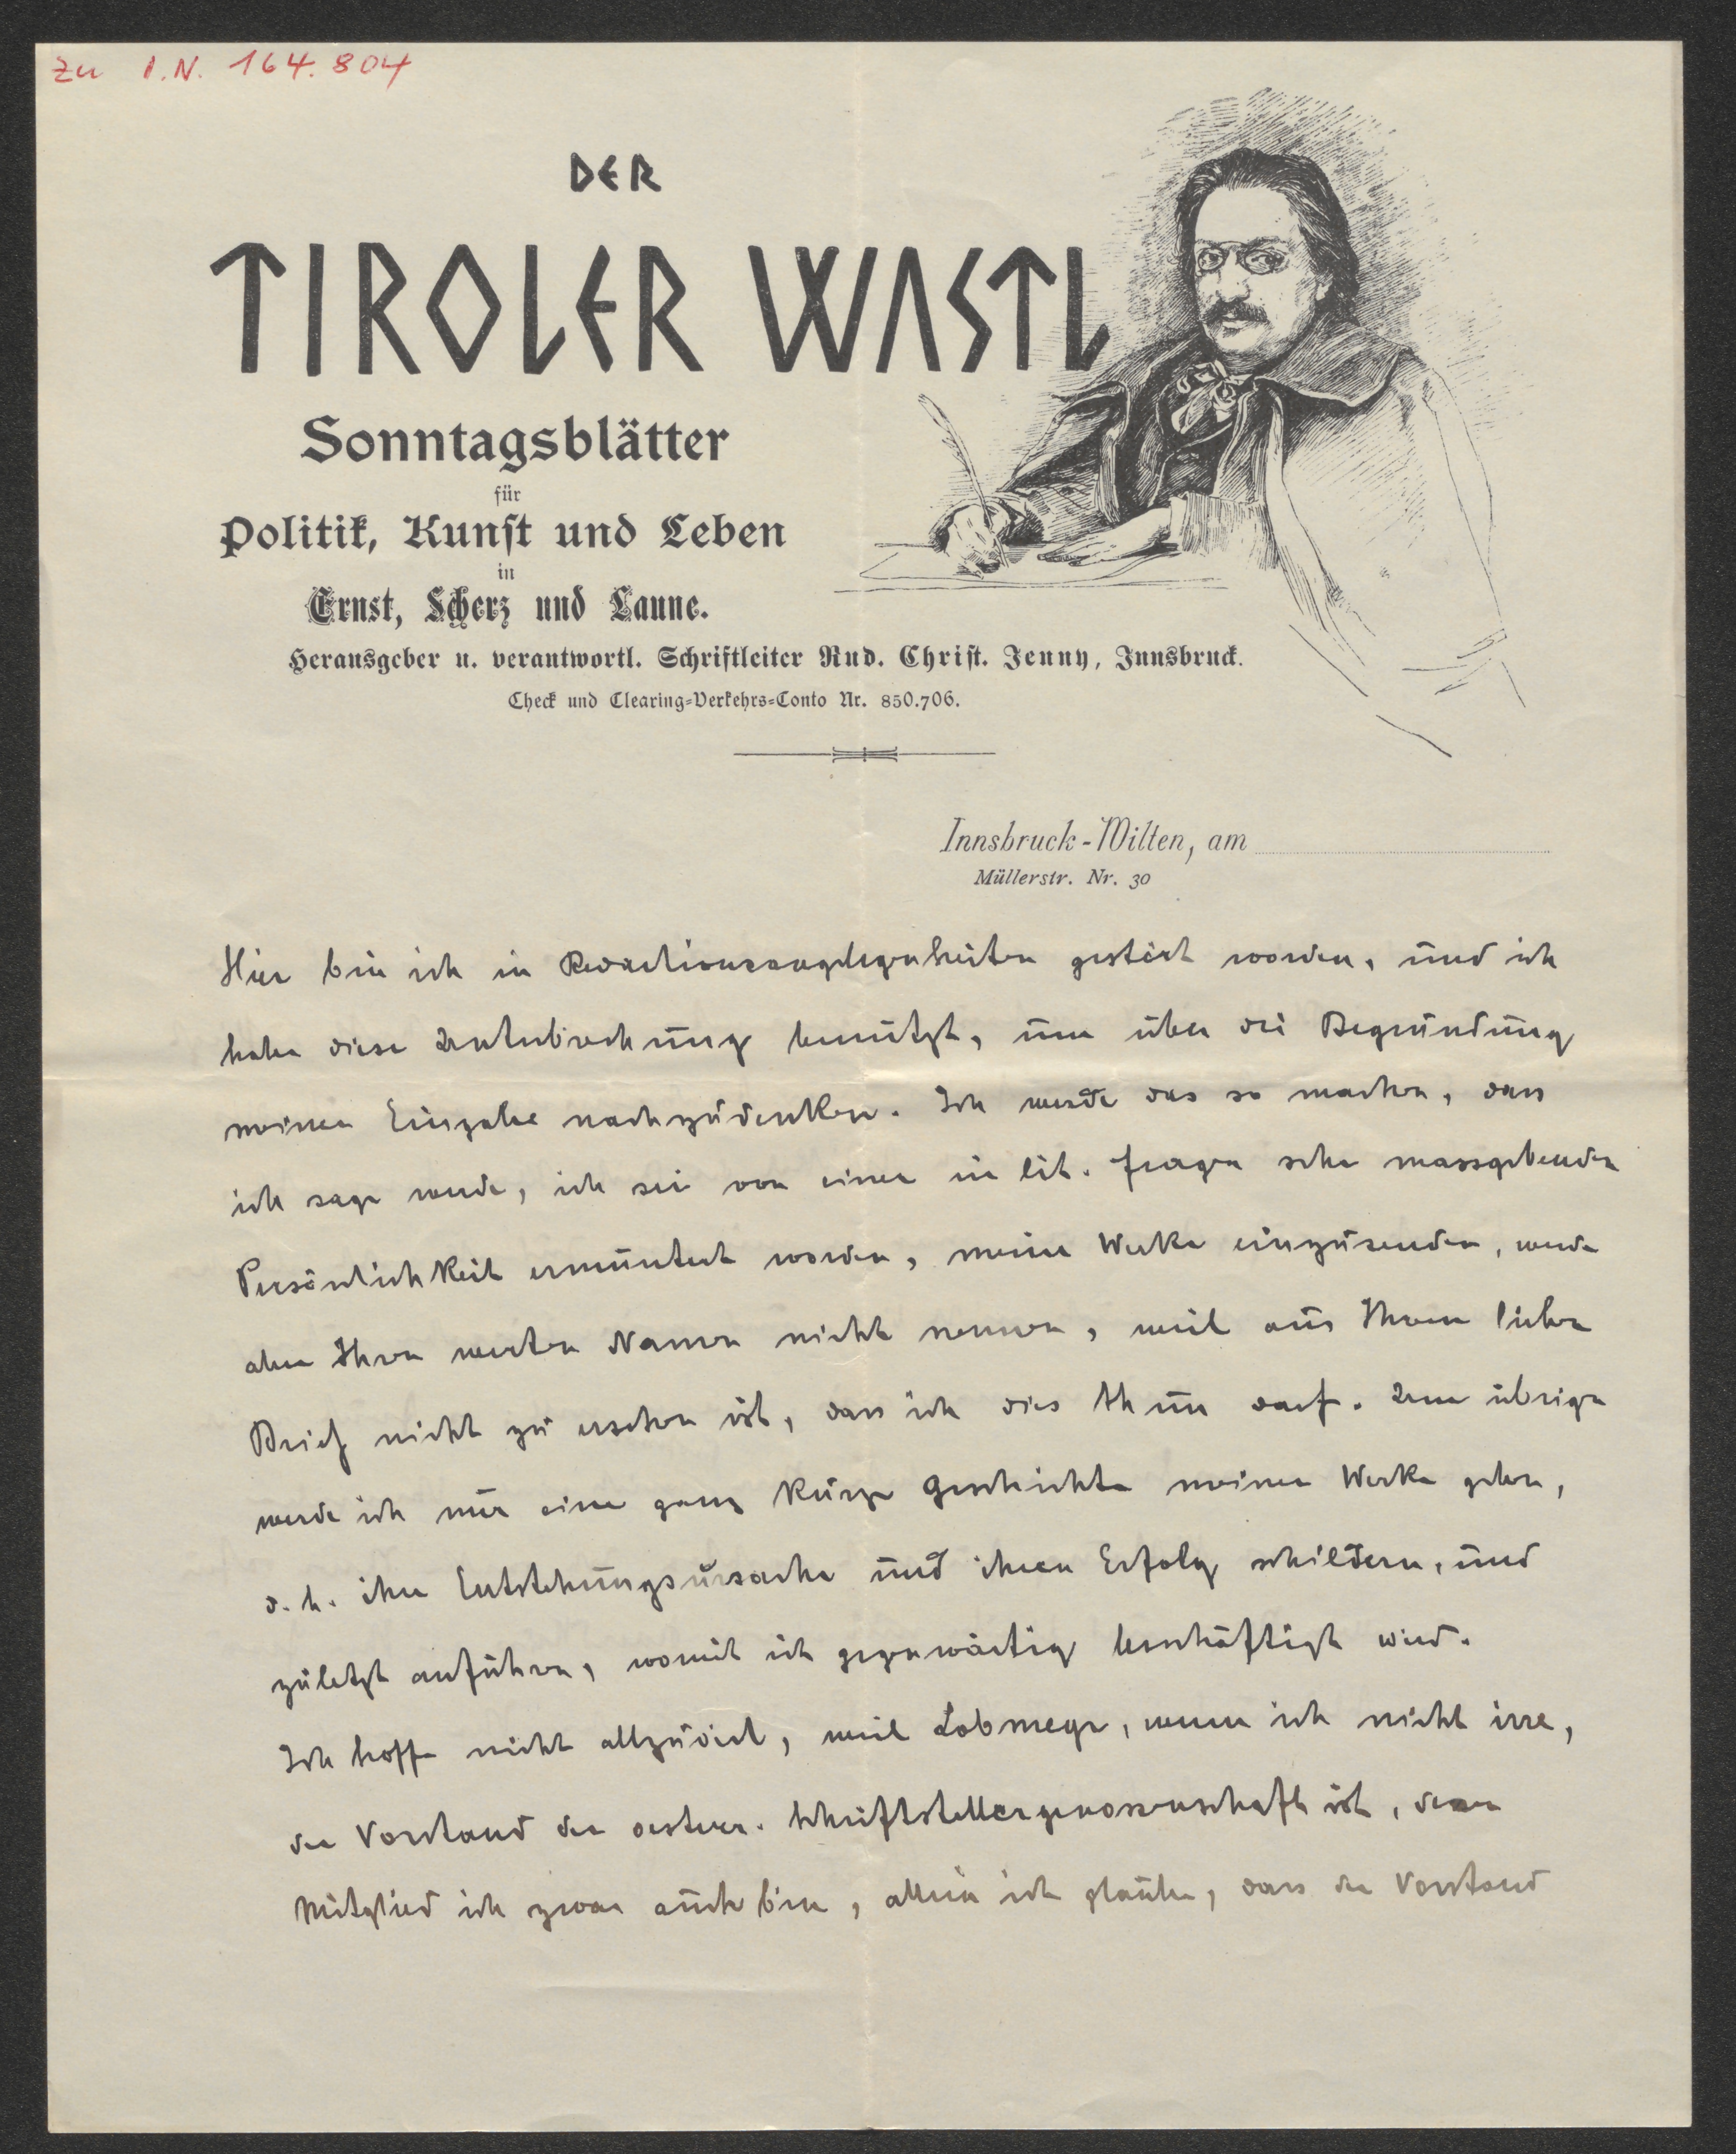 Zu I.N. 164.804
DER
TIROLER WASTL
Sonntagsblätter
für
Politik, Kunst und Leben
in
Ernst, Scherz und Laune.
Herausgeber u. verantwortl. Schriftleiter Rud. Christ. Jenny, Innsbruck.
Check und Clearing-Verkehrs-Conto Nr. 850.706.
Innsbruck-Wilten, am
Müllerstr. Nr. 30
Hier bin ich in Redactionsangelegenheiten gestört worden, und ich
habe diese Unterbrechung benützt, um über die Begründung
meiner Eingabe nachzudenken. Ich werde das so machen, dass
ich sage werde, ich sei von einer in lit. Fragen sehr massgebenden
Persönlichkeit ermuntert worden, meine Werke einzusenden, werde
aber Ihren werten Namen nicht nennen, weil aus Ihrem lieben
Brief nicht zu ersehen ist, dass ich dies thun darf. Im übrigen
werde ich nur eine ganz kurze Geschichte meiner Werke geben,
d. h. ihre Entstehungsursache und ihren Erfolg schildern, und
zuletzt anführen, womit ich gegenwärtig beschäftigt wird.
Ich hoffe nicht allzuviel, weil Lobmeyr, wenn ich nicht irre,
der Vorstand der oesterr. Schriftstellergenossenschaft ist, deren
Mitglied ich zwar auch bin, allein ich glaube, dass der Vorstand